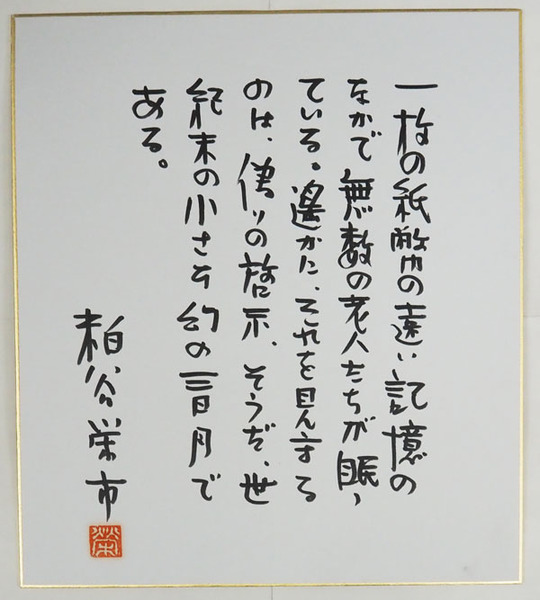 一枚の紙幣の遠い記憶の
なかで無数の老人たちが眠っ
ている。遙かに、それを見守る
のは、偽りの啓示、そうだ、世
紀末の小さな幻の三日月で
ある。
粕谷栄市
栄